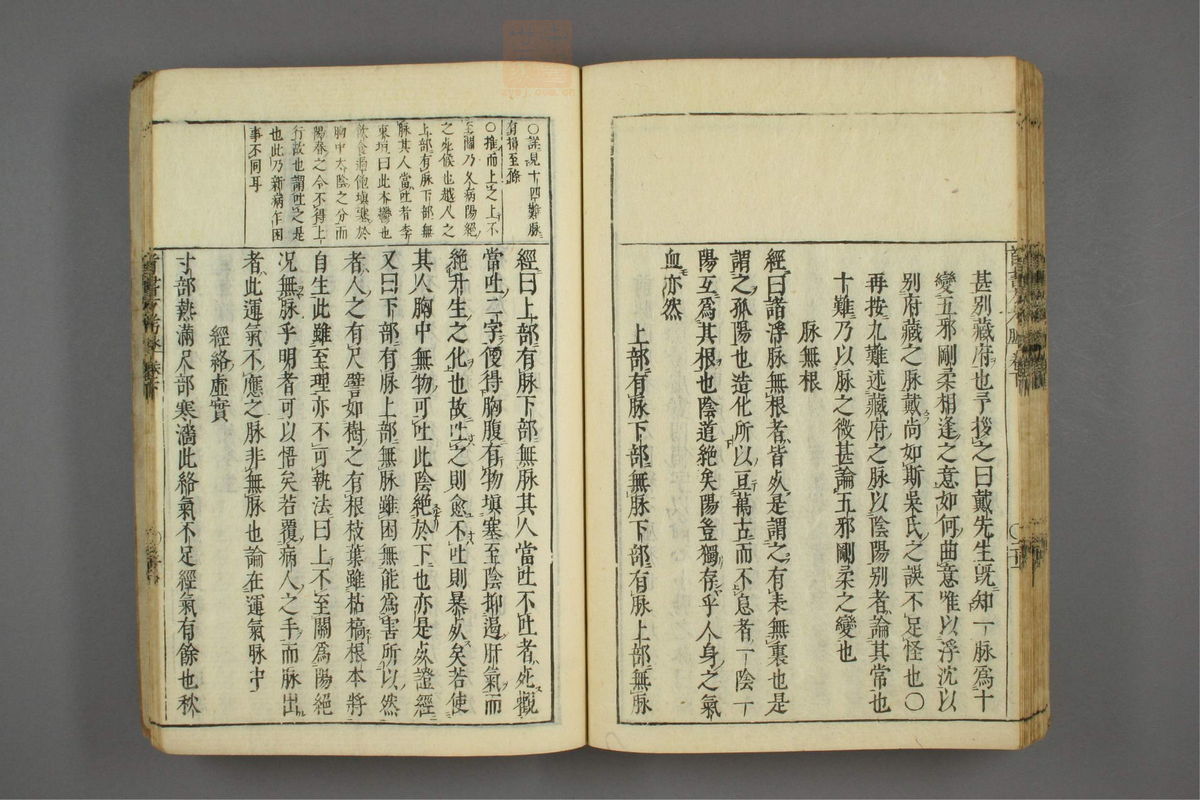 甚別藏府也予拶之曰戴先生既知一脉爲十
變五邪剛柔相逢之意如何曲意唯以浮沈以
別府藏之脉戴尚如斯吳氏之誤不足怪也〇
再按九難述藏府之脉以陰陽別者論其常也
十難乃以脉之微甚論五邪剛柔之變也
脉無根
經曰諸浮脉無根者皆死是謂之有表無裏也是
謂之孤陽也造化所以亘萬古而不息者一陰一
陽互爲其根也陰道絶矣陽豈獨存乎人身之氣
血亦然
上部有脉下部無脉下部有脉上部無脉
〇詳見十四難脉
有損至條
〇推而上之上不
至關乃久病陽經
之死候也越人之
上部有脉下部無
脉其人當吐者李
東垣曰此本鬱也
飲食過飽填塞於
胸中太陰之分而
陽春之令不得上
行故也謂吐之是
也此乃新病乍困
事不同耳
經曰上部有脉下部無脉其人當吐不吐者死觀
當吐二字便得胸腹有物填塞至陰抑遏肝氣而
絶升生之化也故吐之則愈不吐則暴死矣若使
其人胸中無物可吐此陰絶於下也亦是死證經
又曰下部有脉上部無脉雖困無能爲害所以然
者人之有尺譬如樹之有根枝葉雖枯槁根本將
自生此雖至理亦不可執法曰上不至關爲陽絶
况無脉乎明者可以悟矣若覆病人之手而脉出
者此運氣不應之脉非無脉也論在運氣脉中
經絡虛實
寸部熱滿尺部寒濇此絡氣不足經氣有餘也秋